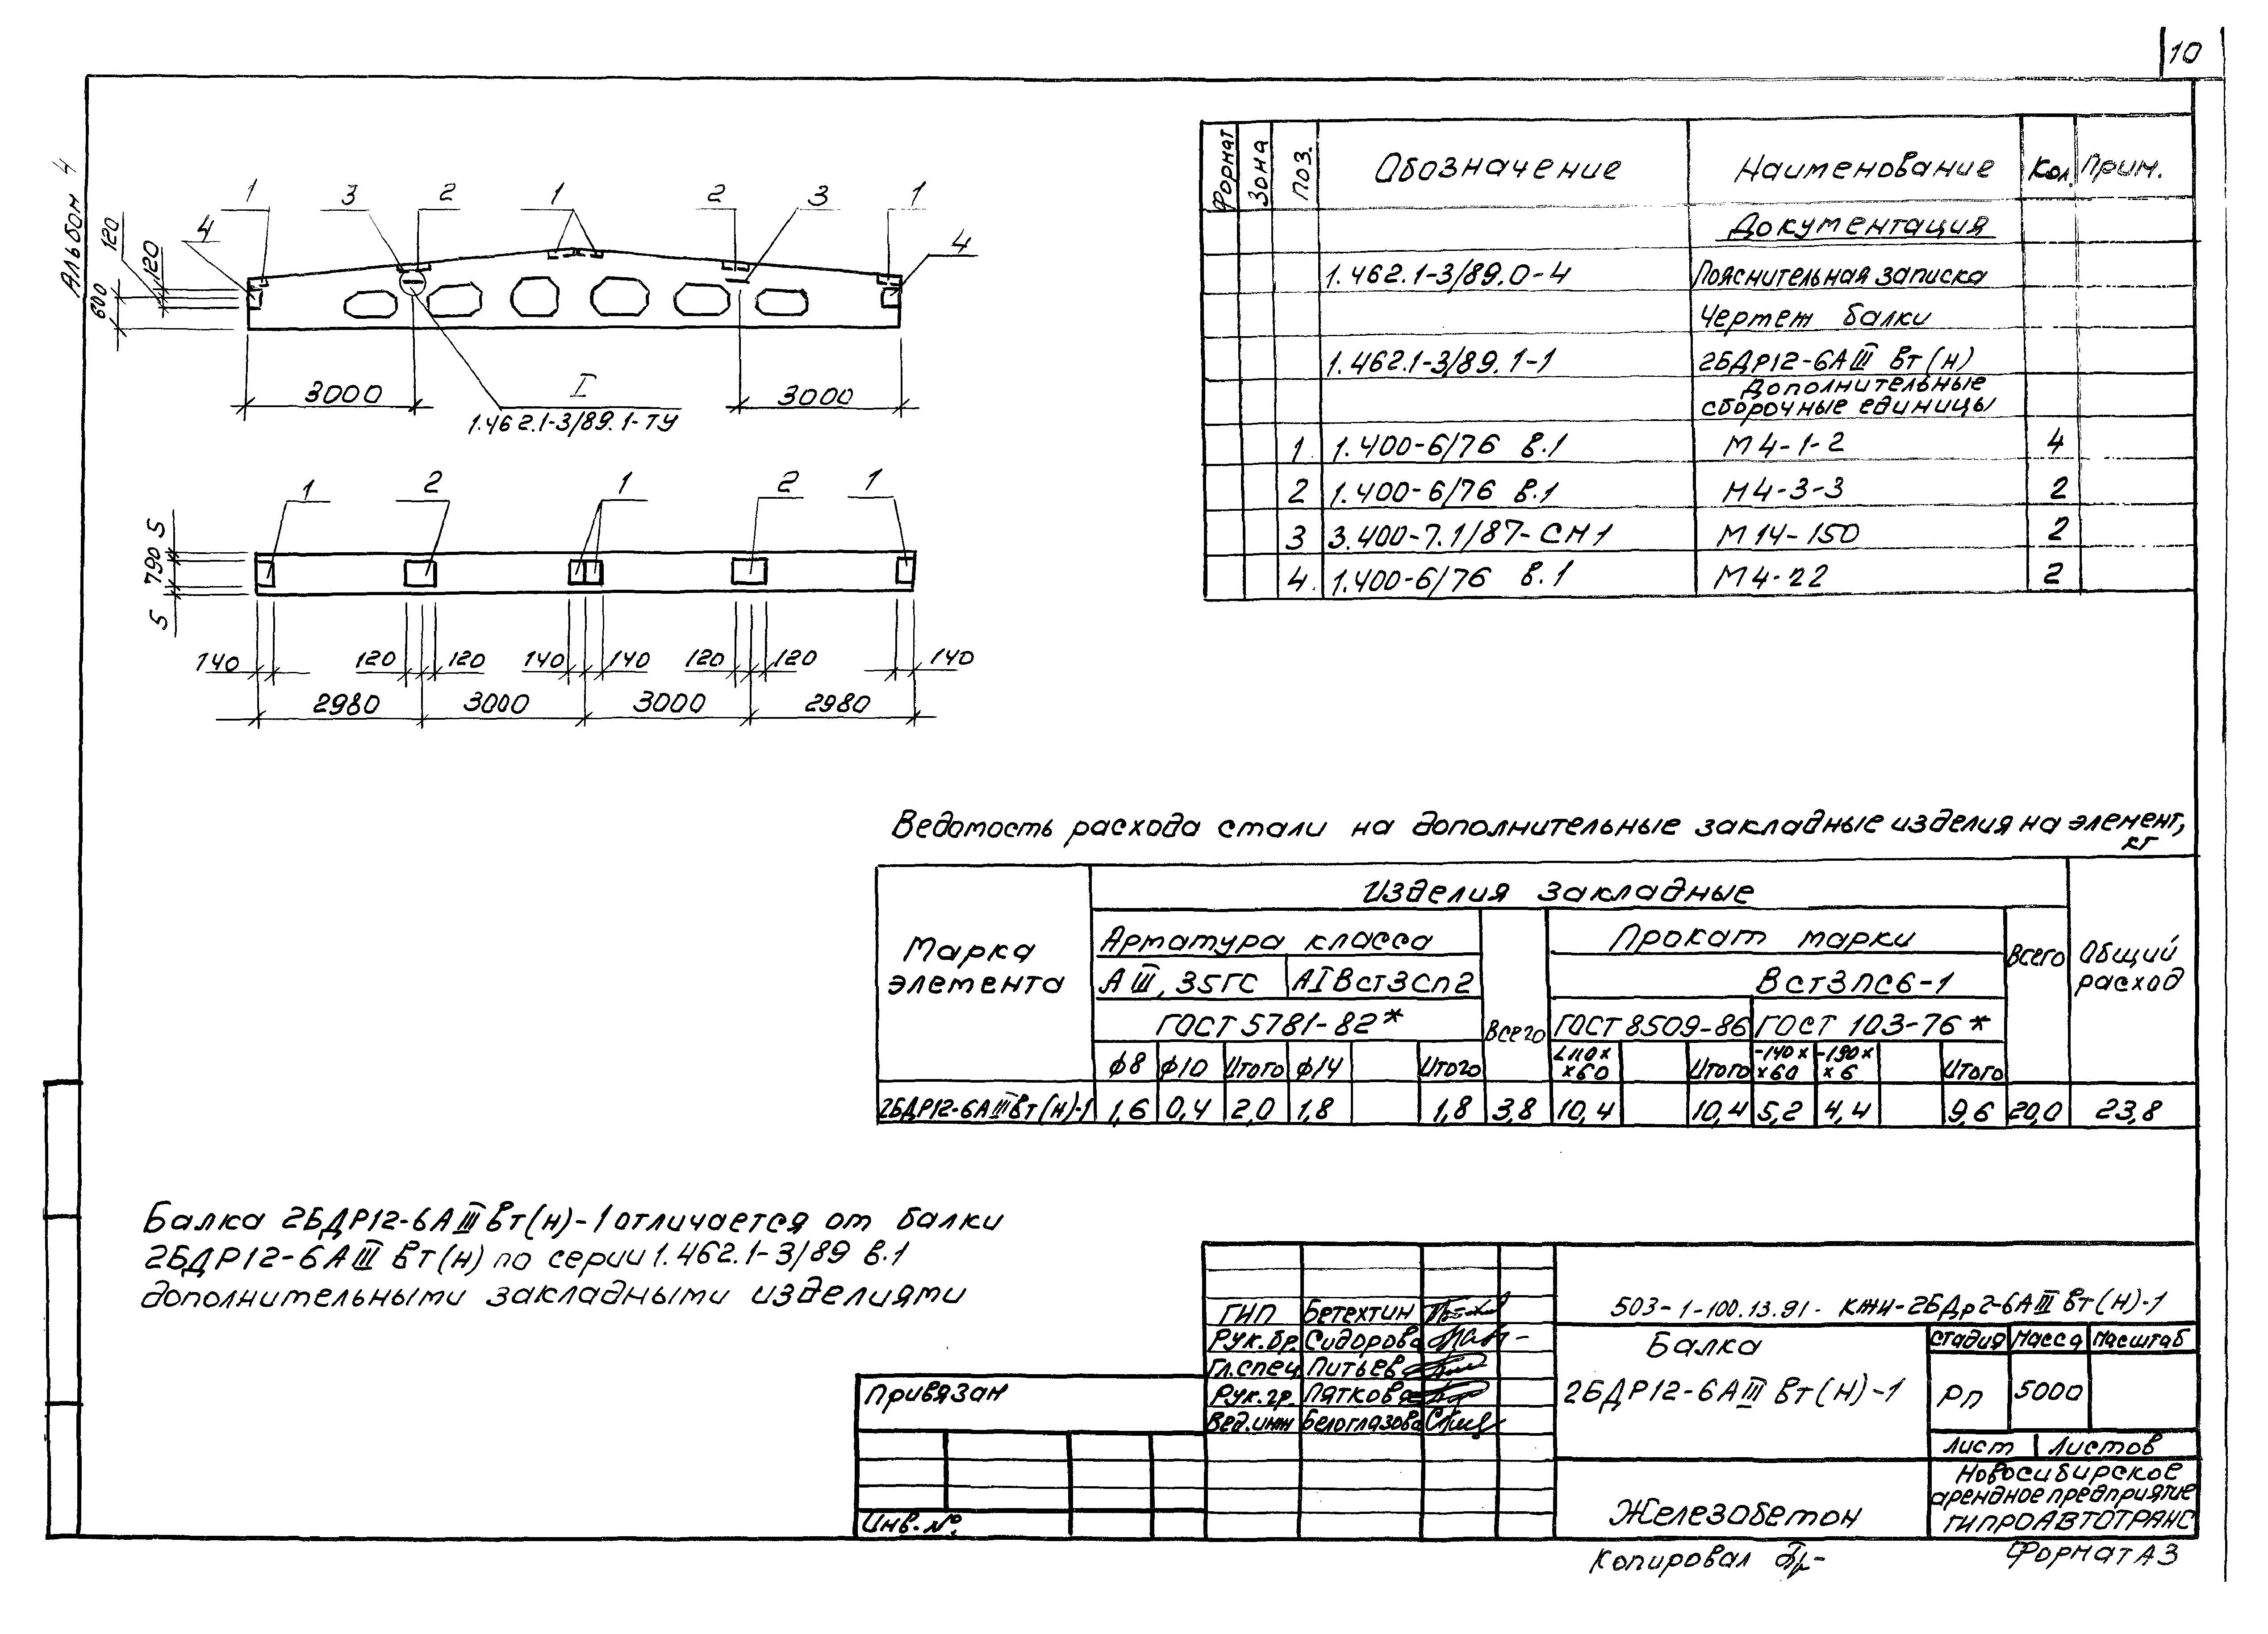 10
Альбом 4
1 3 2 1 2 3 1
4 4
120 120 600
3000 I 3000
1.462.1-3/89.1-ТУ
1 2 1 2 1
5 790 5
140 120 120 140 140 120 120 140
2980 3000 3000 2980
Формат Зона Поз. Обозначение Наименование Кол. Прим.
Документация
1.462.1-3/89.0-4 Пояснительная записка
Чертеж балки
1.462.1-3/89.1-1 2БДР12-6АIIIвт(н)
Дополнительные
сборочные единицы
1 1.400-6/76 в.1 М4-1-2 4
2 1.400-6/76 в.1 М4-3-3 2
3 3.400-7.1/87-СН1 М14-150 2
4. 1.400-6/76 в.1 М4-22 2
Ведомость расхода стали на дополнительные закладные изделия на элемент,
кг
Марка элемента Изделия закладные Общий расход
Арматура класса Всего Прокат марки Всего
АIII, 35ГС АIВст3сп2 Вст3пс6-1
ГОСТ 5781-82* ГОСТ 8509-86 ГОСТ 103-76*
ф8 ф10 Итого ф14 Итого L110x x60 Итого -140x x60 -190x x6 Итого
2БДР12-6АIIIвт(н)-1 1,6 0,4 2,0 1,8 1,8 3,8 10,4 10,4 5,2 4,4 9,6 20,0 23,8
Балка 2БДР12-6АIIIвт(н)-1 отличается от балки
2БДР12-6АIIIвт(н) по серии 1.462.1-3/89 в.1
дополнительными закладными изделиями
Привязан
Инв.№
ГИП Бетехтин
Рук.бр. Сидорова
Гл.спец Питьев
Рук.гр. Пяткова
Вед.инж Белоглазова
503-1-100.13.91- КЖИ-2БДр2-6АIIIвт(н)-1
Балка
2БДР12-6АIIIвт(н)-1
Стадия Масса Масштаб
РП 5000
Лист Листов
Железобетон
Новосибирское
арендное предприятие
ГИПРОАВТОТРАНС
Копировал
Формат А3